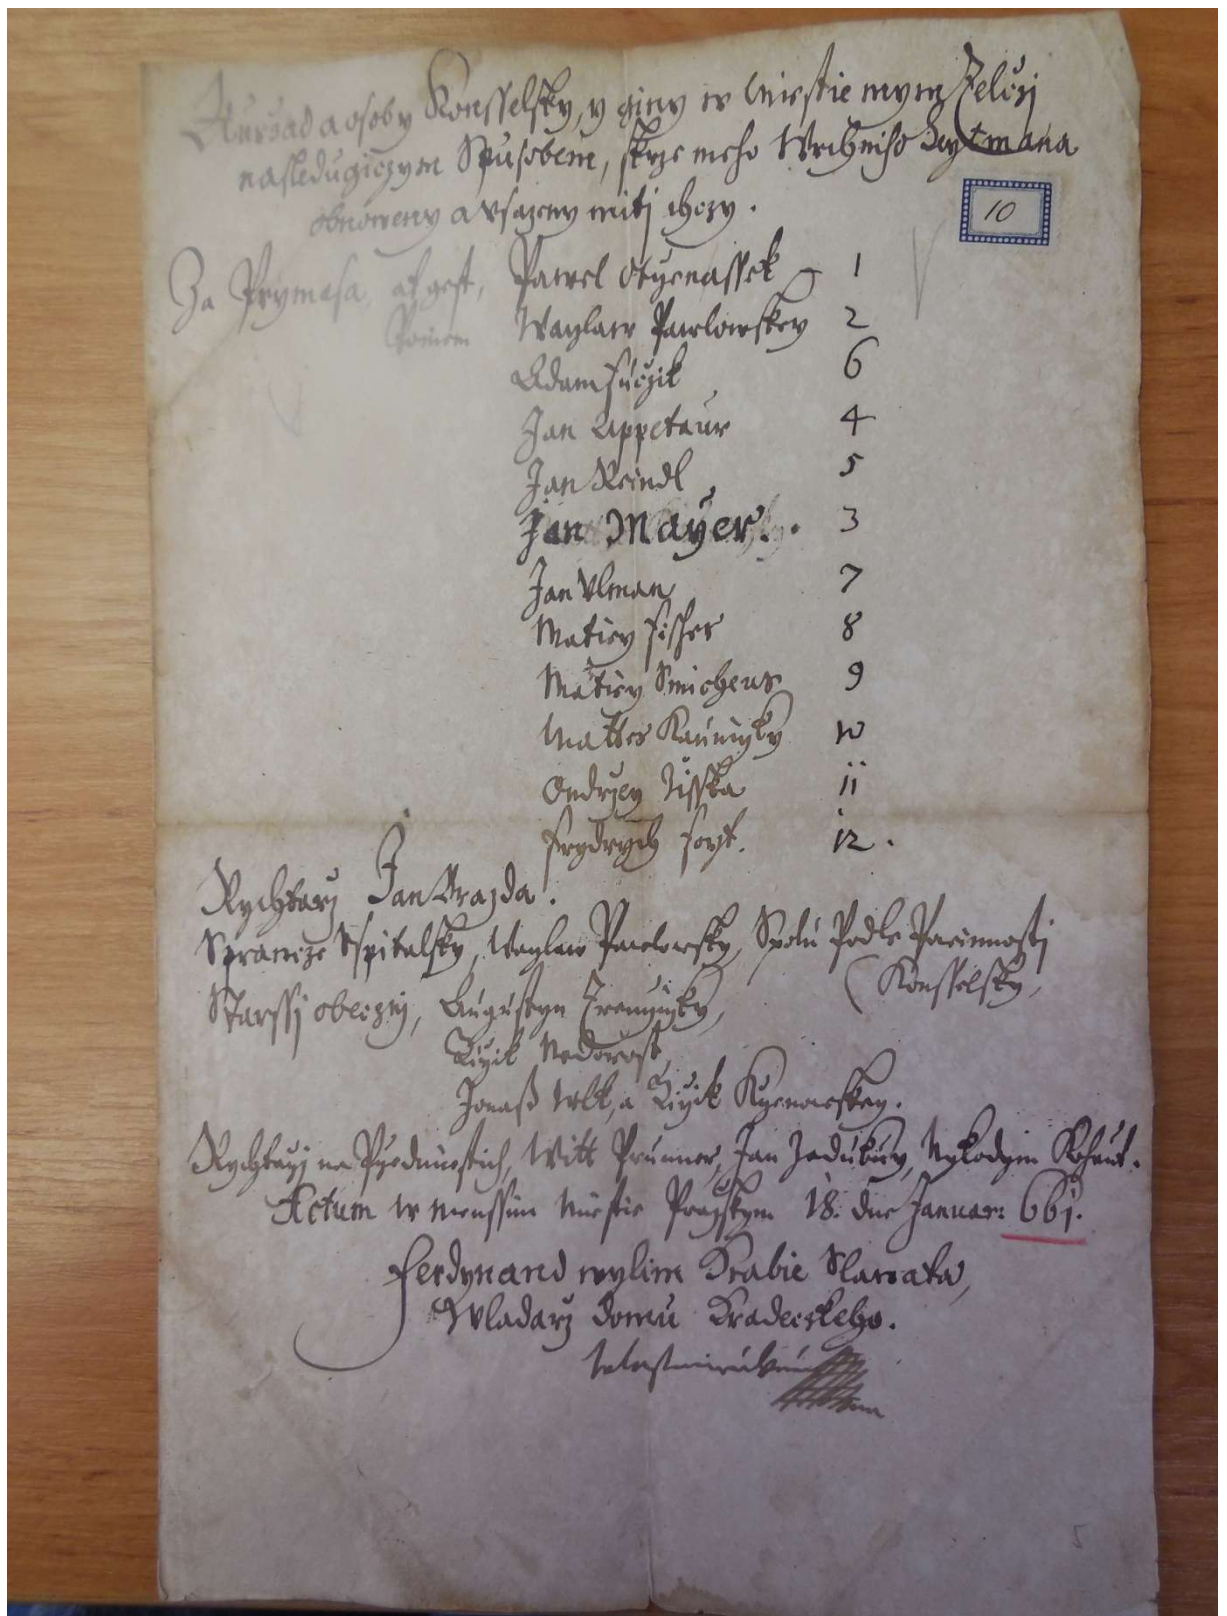 Auržad a osoby Konsselsky, y giny w Miestie mym Telczi
nasledugiczym Spusobem, skrze meho Wrchniho Heytmana
obnoweny a wsazeny mitj chczy.
10
Za Prymasa, at gest, Pawel Otzenassek 1
Potom Waczlaw Pawlowskey 2
Adam Fuczik 6
Jan Appetaur 4
Jan Reindl 5
Jan Mayer. 3
Jan Vlman 7
Matiey Fischer 8
Matiey 9
Mattes 10
Ondrzey Tisska 11
Frydrych 12.
Rychtarz Jan Brazda.
Sprawcze Sspitalsky, Waczlaw Pawlowsky, Spolu Podle Powinnosti
(Konsselsky,
Starssj obeczni, Augustyn
Jiřik Nedorost,
Jonaß Wlk, a Jiřik
Rychtarzi na Przedmiestich, Witt Prunner, Jan Nykodym Kohaut.
Actum w Menssim Miestie Prazskym 18. dne Januar: 661.
Ferdynand wylim Hrabie Slawata,
Wladarz Domu Hradeczkeho.